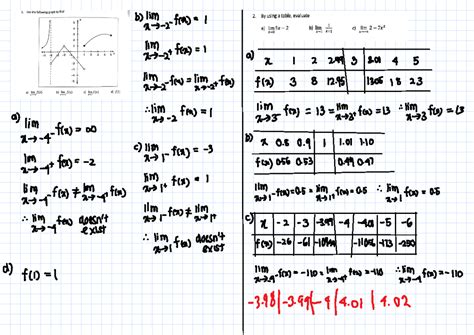 1. Use the following graph to find
a) lim f(x) b) lim f(x) c) lim f(x) d) f(1)
a) lim x→-4⁻ f(x) = ∞
lim x→-4⁺ f(x) = -2
lim x→-4⁻ f(x) ≠ lim x→-4⁺ f(x)
∴ lim x→-4 f(x) doesn't exist
d) f(1) = 1
b) lim x→-2⁻ f(x) = 1
lim x→-2⁺ f(x) = 1
lim x→-2⁻ f(x) = lim f(x)
∴ lim x→-2 f(x) = 1
c) lim x→1⁻ f(x) = -3
lim x→1⁺ f(x) = 1
lim x→1⁻ f(x) ≠ lim x→1⁺
∴ lim x→1 f(x) doesn't exist
2. By using a table, evaluate
a) lim 5x - 2 b) lim c) lim 2 - 7x²
a)
x 1 2 2.99 3 3.01 4 5
f(x) 3 8 12.95 13.05 18 23
lim x→3⁻ f(x) = 13 = lim x→3⁺ f(x) ∴ lim x→3 f(x) = 13
b)
x 0.5 0.9 1 1.01 1.10
f(x) 0.56 0.53 0.49 0.47
lim x→1⁻ f(x) = 0.5 = lim x→1⁺ f(x) = 0.5 ∴ lim x→1 f(x) = 0.5
c)
x -2 -3 -3.99 -4 -4.01 -5 -6
f(x) -26 -61 -173 -250
lim x→-4⁻ f(x) = -110 = lim x→-4⁺ f(x) = -110 ∴ lim x→-4 f(x) = -110
-3.98 | -3.99 | -4 | 4.01 | 4.02